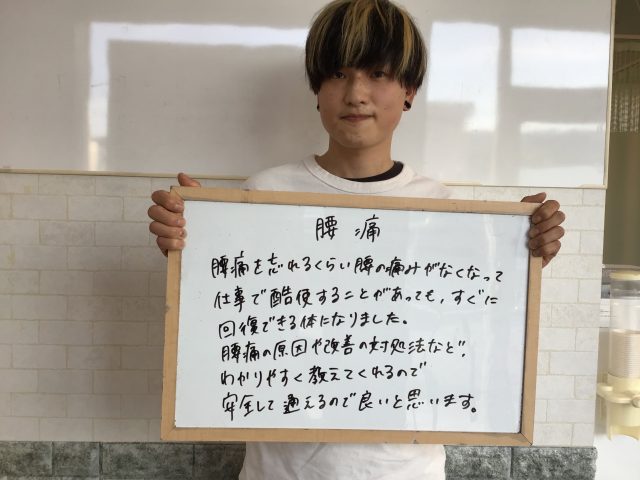 腰痛
腰痛を忘れるくらい腰の痛みがなくなって
仕事で酷使することがあっても、すぐに
回復できる体になりました。
腰痛の原因や改善の対処法など、
わかりやすく教えてくれるので
安全して通えるので良いと思います。